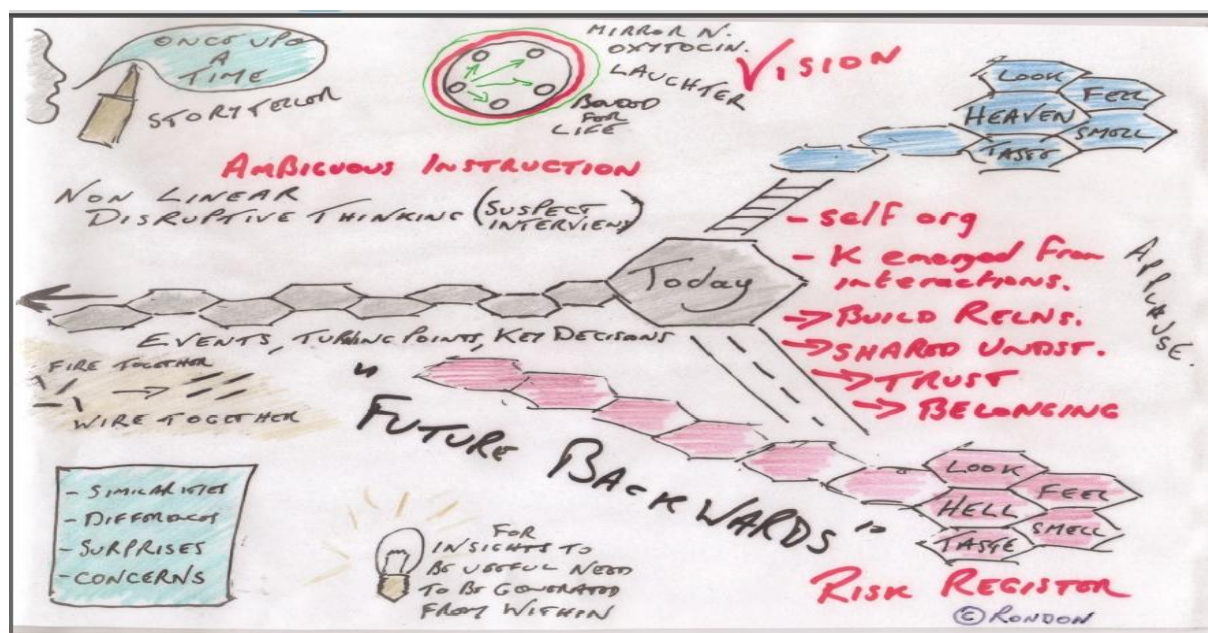 ONCE UPON
A
TIME
STORYTELLOR
MIRROR N.
OXYTOCIN.
LAUGHTER
BONDED
FOR
LIFE
VISION
LOOK
FEEL
HEAVEN
SMELL
TASTE
AMBIGUOUS INSTRUCTION
NON LINEAR
DISRUPTIVE THINKING (SUSPECT
INTERVIEW)
Today
- self org
- K emerged from
interactions.
→ BUILD RELNS.
→ SHARED UNDST.
→ TRUST
→ BELONGING
APPLAUSE.
EVENTS, TURNING POINTS, KEY DECISIONS
FIRE TOGETHER
WIRE TOGETHER
"FUTURE BACKWARDS"
- SIMILARITIES
- DIFFERENCES
- SURPRISES
- CONCERNS
FOR
INSIGHTS TO
BE USEFUL NEED
TO BE GENERATED
FROM WITHIN
LOOK
FEEL
HELL
SMELL
TASTE
RISK REGISTER
© RONDON